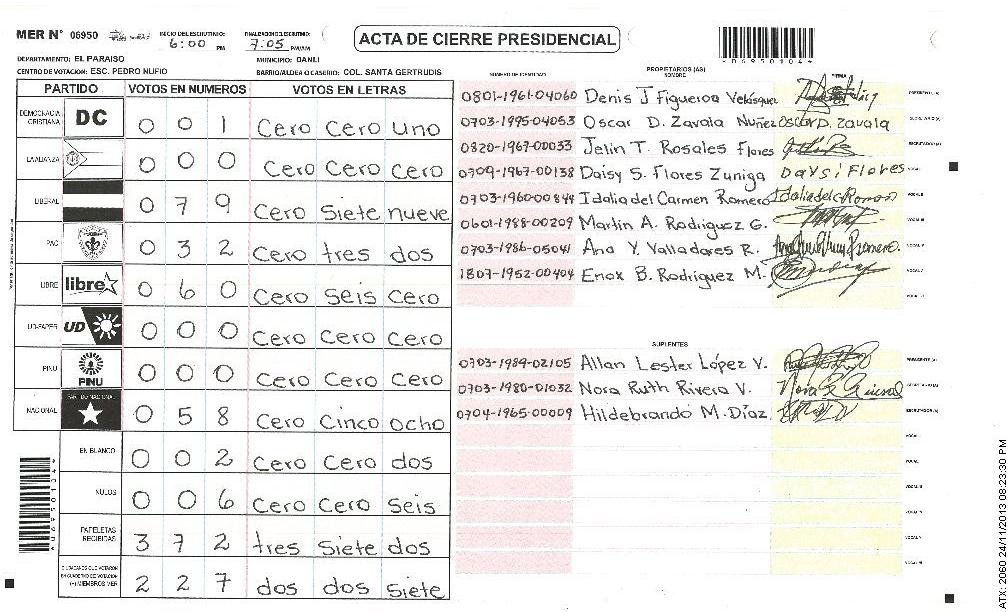 MER N° 06950 INICIO DEL ESCRUTINIO: 6:00 PM FINALIZACION DEL ESCRUTINIO: 7:05 PM/AM
ACTA DE CIERRE PRESIDENCIAL
*06950104*
DEPARTAMENTO: EL PARAISO MUNICIPIO: DANLI
CENTRO DE VOTACION: ESC. PEDRO NUFIO BARRIO/ALDEA O CASERIO: COL. SANTA GERTRUDIS
PARTIDO VOTOS EN NUMEROS VOTOS EN LETRAS
DEMOCRACIA CRISTIANA DC 0 0 1 Cero Cero uno
LA ALIANZA 0 0 0 Cero Cero Cero
LIBERAL 0 7 9 Cero Siete nueve
PAC 0 3 2 Cero tres dos
LIBRE libre 0 6 0 Cero Seis Cero
UD-FAPER UD 0 0 0 Cero Cero Cero
PINU PINU 0 0 0 Cero Cero Cero
NACIONAL PARTIDO NACIONAL 0 5 8 Cero Cinco ocho
EN BLANCO 0 0 2 Cero Cero dos
NULOS 0 0 6 Cero Cero Seis
PAPELETAS RECIBIDAS 3 7 2 tres Siete dos
CIUDADANOS QUE VOTARON EN CUADERNO DE VOTACION (+) MIEMBROS MER 2 2 7 dos dos Siete
*06950104*
NUMERO DE IDENTIDAD PROPIETARIOS (AS) NOMBRE FIRMA
0801-1961-04060 Denis J Figueroa Velásquez PRESIDENTE (A)
0703-1995-04053 Oscar D. Zavala Nuñez Oscar D. Zavala SECRETARIO (A)
0820-1967-00033 Jelin T. Rosales Flores ESCRUTADOR (A)
0709-1967-00138 Daisy S. Flores Zuniga Daysi Flores VOCAL I
0703-1960-00848 Idalia del Carmen Romero Idalia del C Romero VOCAL II
0601-1988-00209 Martin A. Rodriguez G. VOCAL III
0703-1986-05041 Ana Y. Valladares R. VOCAL IV
1807-1952-00404 Enox B. Rodriguez M. VOCAL V
SUPLENTES
0703-1989-02105 Allan Lester López V. PRESIDENTE (A)
0703-1980-01032 Nora Ruth Rivera V. SECRETARIO (A)
0704-1965-00009 Hildebrando M. Díaz. ESCRUTADOR (A)
VOCAL I
VOCAL II
VOCAL III
VOCAL IV
VOCAL V
ATX: 2060 24/11/2013 08:23:30 PM